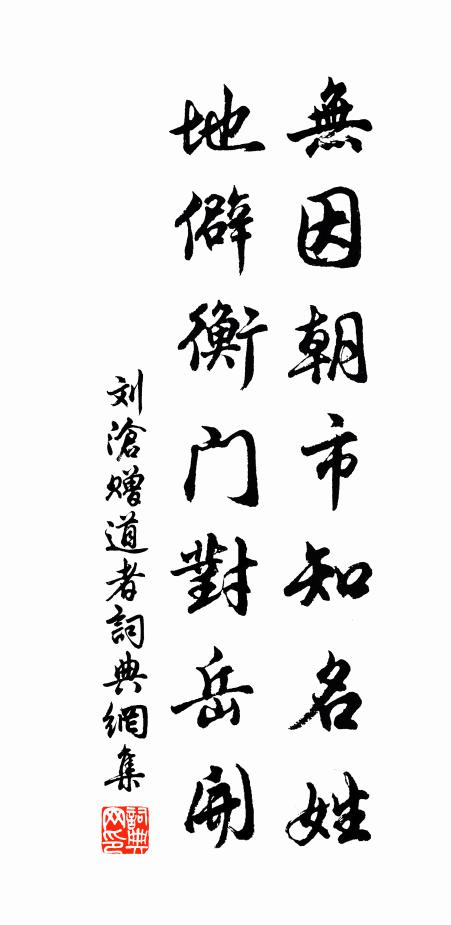 無因朝市知名姓
地僻衡门對岳開
刘滄赠道者詞典網集
詞典网印